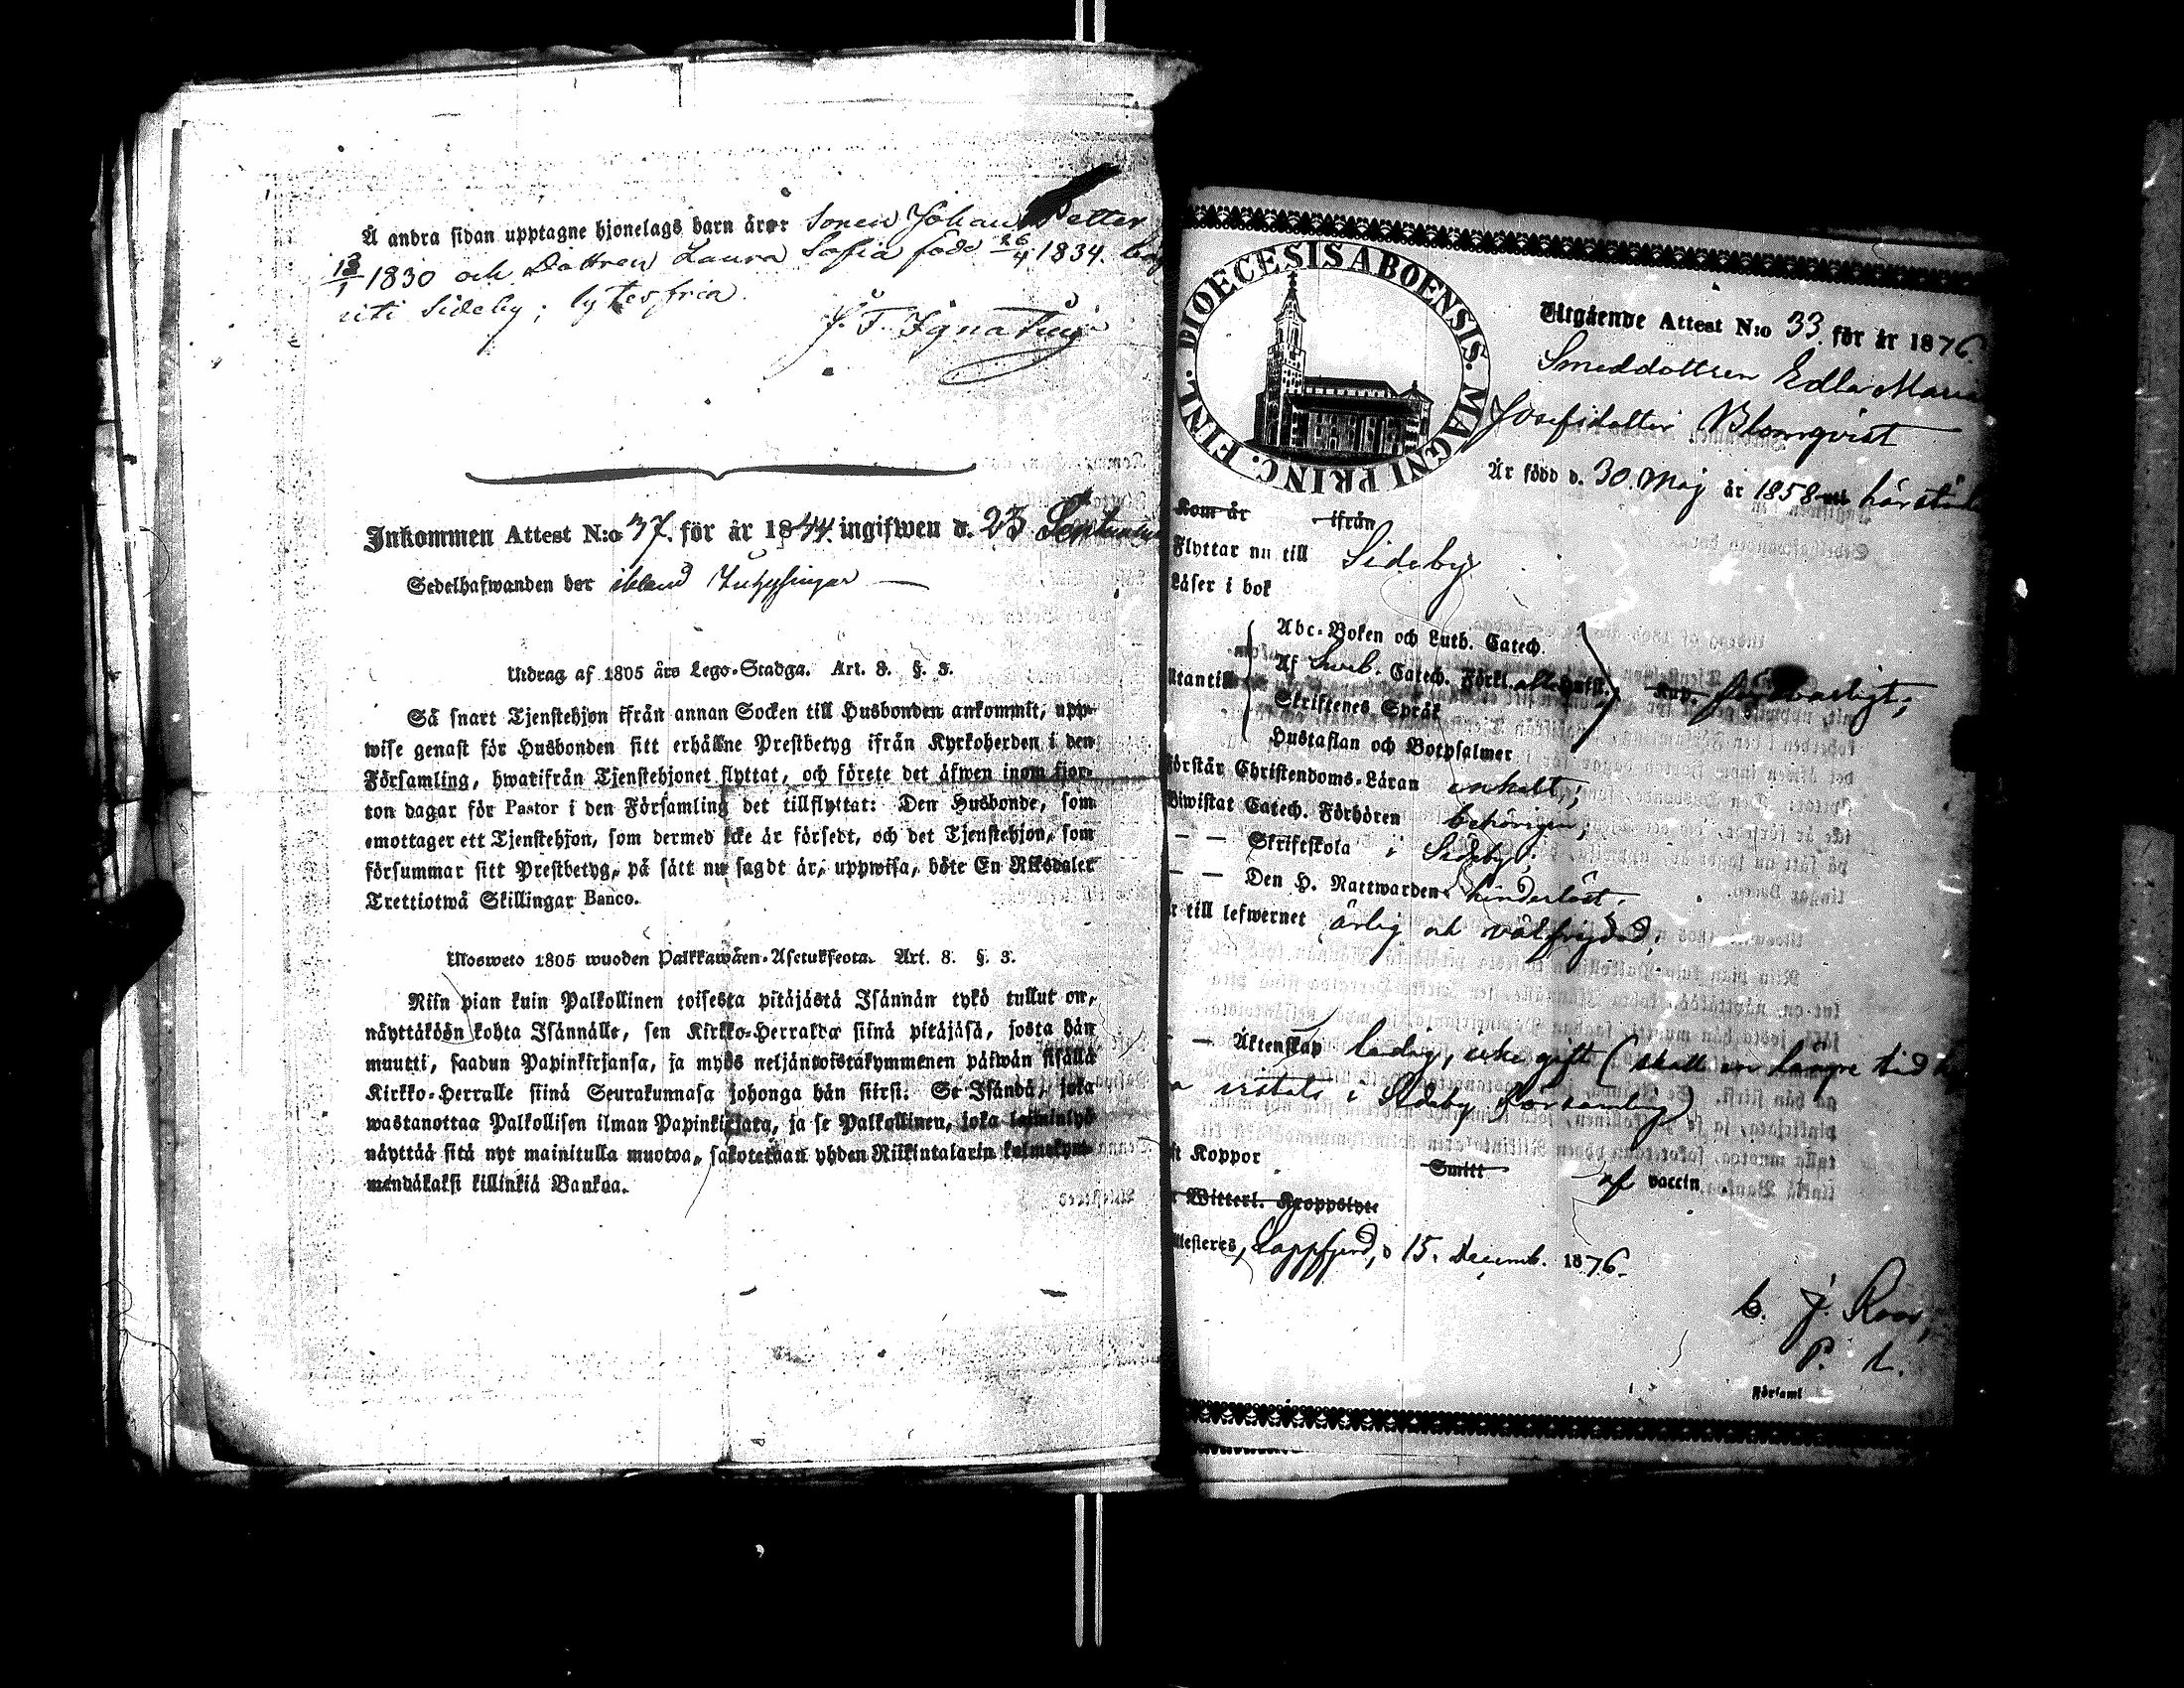 Å andra sidan upptagne hjonelags barn äro: Sonen Johan Petter
13/1 1830 och Dottren Laura Sofia född 26/4 1834.
uti Sideby; lytesfria.
J. F. Ignatius
Inkommen Attest N:o 37. för år 1844. ingifwen d. 23 September
Sedelhafwanden bor ibland Inhysingar
Utdrag af 1805 års Lego-Stadga. Art. 8. §. 3.
Så snart Tjenstehjon ifrån annan Socken till Husbonden ankommit, upp-
wise genast för Husbonden sitt erhållne Prestbetyg ifrån Kyrkoherden i den
Församling, hwarifrån Tjenstehjonet flyttat, och förete det äfwen inom fjor-
ton dagar för Pastor i den Församling det tillflyttat: Den Husbonde, som
emottager ett Tjenstehjon, som dermed icke är försedt, och det Tjenstehjon, som
försummar sitt Prestbetyg, på sätt nu sagdt är, uppwisa, böte En Riksdaler
Trettiotwå Skillingar Banco.
Ulosweto 1805 wuoden Palkkawäen-Asetuksesta. Art. 8. §. 3.
Niin pian kuin Palkollinen toisesta pitäjästä Isännän tykö tullut on,
näyttäköön kohta Isännälle, sen Kirkko-Herralda siinä pitäjäsä, josta hän
muutti, saadun Papinkirjansa, ja myös neljäntoistakymmenen päiwän sisällä
Kirkko-Herralle siinä Seurakunnasa johonga hän siirsi: Se Isändä, joka
wastanottaa Palkollisen ilman Papinkirjata, ja se Palkollinen, joka laiminlyö
näyttää sitä nyt mainitulla muotoa, sakotetaan yhden Riikintalarin kolmekym-
mendäkaksi killinkiä Bankoa.
DIOECESIS ABOENSIS. MAGNI PRINC. FINL.
Utgående Attest N:o 33. för år 1876.
Smeddottren Edla Maria
Josefsdotter Blomqvist
Är född d. 30. Maj år 1858 härstädes
Kom år ifrån
Flyttar nu till Sideby
Läser i bok
Abc-Boken och Luth. Catech.
Utantill Af Sweb. Catech. Förkl. Kap. försvarligt;
Skriftenes Språk
Hustaflan och Botpsalmer
Förstår Christendoms-Läran enkelt;
Biwistat Catech. Förhören behörigen;
— — Skriftskola i Sideby;
— — Den H. Nattwarden hinderlöst.
r till lefwernet ärlig och välfrejdad;
— Äktenskap ledig, icke gift (skall en längre tid
vistats i Sideby Församling)
ft Koppor Smitt af vaccin
r Witterl. Kroppslyte
ttesteres, Lappfjerd, d 15. Decemb. 1876.
J. Roos,
P. L.
Församl